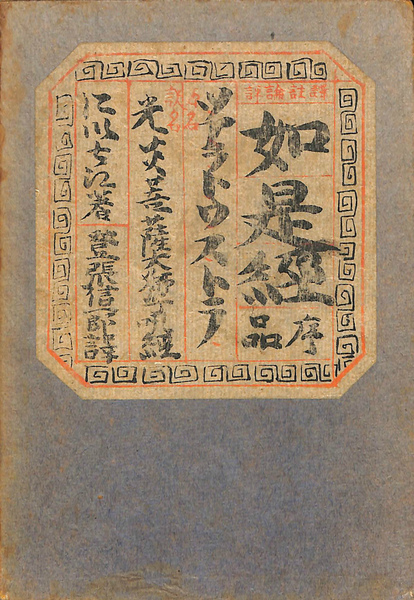 譯註論評
如是經 序品
ツァラトウストラ
光炎菩薩大獅子吼經
登張信一郎譯